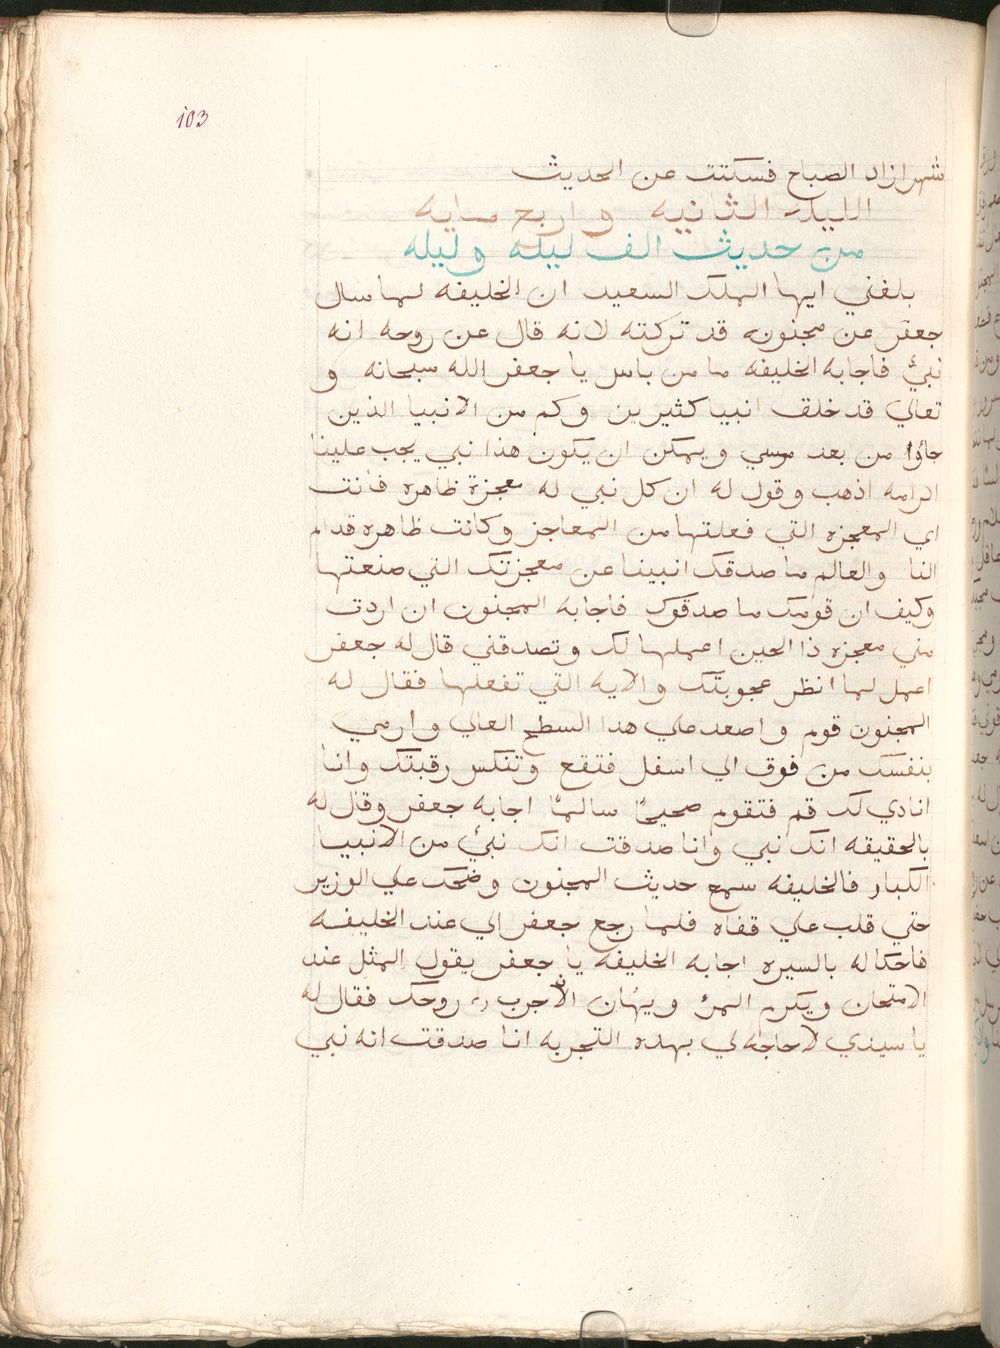 103
شهرازاد الصباح فسكتت عن الحديث
الليلة الثانيه واربع مايه
من حديث الف ليله وليله
بلغني ايها الملك السعيد ان الخليفه لما سال
جعفر عن مجنونه قد تركته لانه قال عن روحه انه
نبيٌ فاجابه الخليفه ما من باس يا جعفر الله سبحانه و
تعالي قد خلق انبيا كثيرين وكم من الانبيا الذين
جاؤا من بعد موسي ويمكن ان يكون هذا نبي يجب علينا
اكرامه اذهب وقول له ان كل نبي له معجزة ظاهره فانت
اي المعجزه التي فعلتها من المعاجز وكانت ظاهره قدام
النا والعالم ما صدقك انبينا عن معجزتك التي صنعتها
وكيف ان قومك ما صدقوك فاجابه المجنون ان اردت
مني معجزه ذا الحين اعملها لك وتصدقني قال له جعفر
اعمل لما انظر عجوبتك والايه التي تفعلها فقال له
المجنون قوم واصعد علي هدا السطح العالي وارمي
بنفسك من فوق الي اسفل فتقع وتنكس رقبتك وانا
انادي لك قم فتقوم صحيحًا سالمًا اجابه جعفر وقال له
بالحقيقه انك نبي وانا صدقت انك نبيٌ من الانبيا
الكبار فالخليفه سمع حديث المجنون وضحك علي الوزير
حتي قلب علي قفاه فلما رجع جعفر الي عند الخليفه
فاحكا له بالسيره اجابه الخليفه يا جعفر يقول المثل عند
الامتحان ويكرم المرٔ ويهان الان جرب روحك فقال له
يا سيدي لا حاجه لي بهده التجربه انا صدقت انه نبي